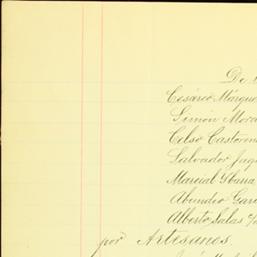 De
Cesáreo Márque
Simón Mora
Celso Castoren
Salvador Jaq
Marcial Ybarra
Abundio Garc
Alberto Salas
por Artesanos.